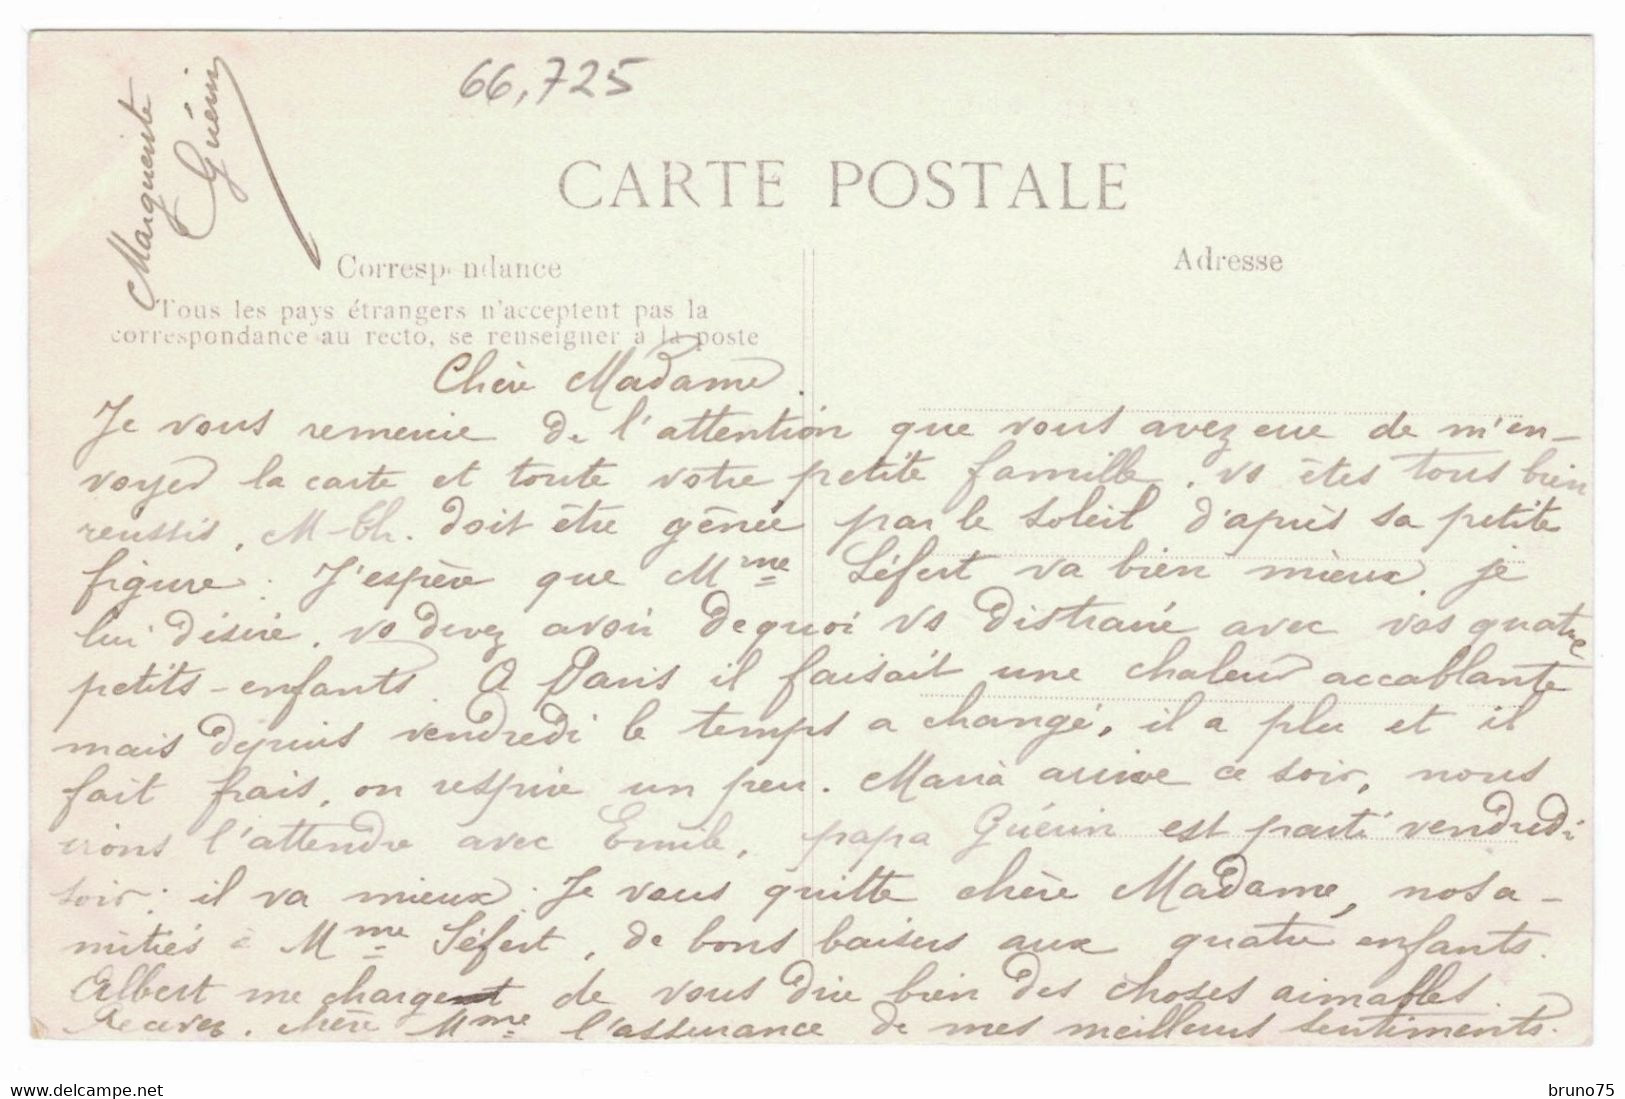 66,725
Marguerite
Guérin
CARTE POSTALE
Correspondance
Adresse
Tous les pays étrangers n'acceptent pas la
correspondance au recto, se renseigner à la poste
Chère Madame.
Je vous remercie de l'attention que vous avez eue de m'en-
voyer la carte et toute votre petite famille. vs êtes tous bien
reussis, M-Th. doit être gênée par le soleil d'après sa petite
figure. J'espère que Mme Séfert va bien mieux je
lui désire, vs devez avoir de quoi vs distraire avec vos quatre
petits-enfants. A Paris il faisait une chaleur accablante
mais depuis vendredi le temps a changé, il a plu et il
fait frais, on respire un peu. Maria arrive ce soir, nous
irons l'attendre avec Emile, papa Guérin est parti vendredi
soir. il va mieux. Je vous quitte chère Madame, nos a-
mitiés à Mme Séfert, de bons baisers aux quatre enfants.
Albert me charge de vous dire bien des choses aimables.
Recevez, chère Mme l'assurance de mes meilleurs sentiments.
www.delcampe.net
bruno75